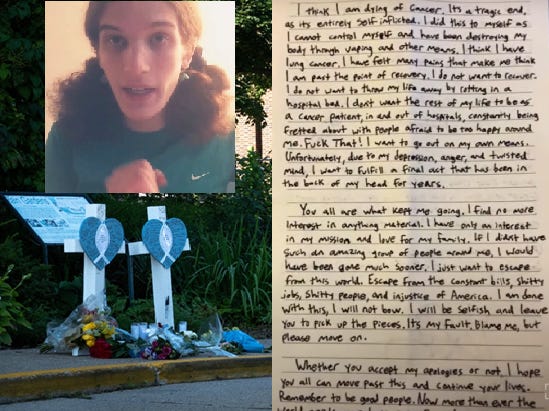 Garden
I think I am dying of cancer. Its a tragic end,
as its entirely self inflicted. I did this to myself as
I cannot control myself and have been destroying my
body through vaping and other means. I think I have
lung cancer. I have felt many pains that make me think
I am past the point of recovery. I do not want to recover.
I do not want to throw my life away by rotting in a
hospital bed. I dont want the rest of my life to be as
a cancer patient, in and out of hospitals, constantly being
fretted about with people afraid to be too happy around
me. Fuck That! I want to go out on my own means.
Unfortunately, due to my depression, anger, and twisted
mind, I want to fulfill a final act that has been in
the back of my head for years.
You all are what kept me going, I find no more
interest in anything material. I have only an interest
in my mission and love for my family. If I didnt have
such an amazing group of people around me, I would
have been gone much sooner. I just want to escape
from this world. Escape from the constant bills, shitty
jobs, shitty people, and injustice of America. I am done
with this, I will not bow. I will be selfish and leave
you to pick up the pieces. Its my fault, blame me, but
please move on.
Whether you accept my apologies or not, I hope
you all can move past this and continue your lives.
Remember to be good people. Now more than ever the